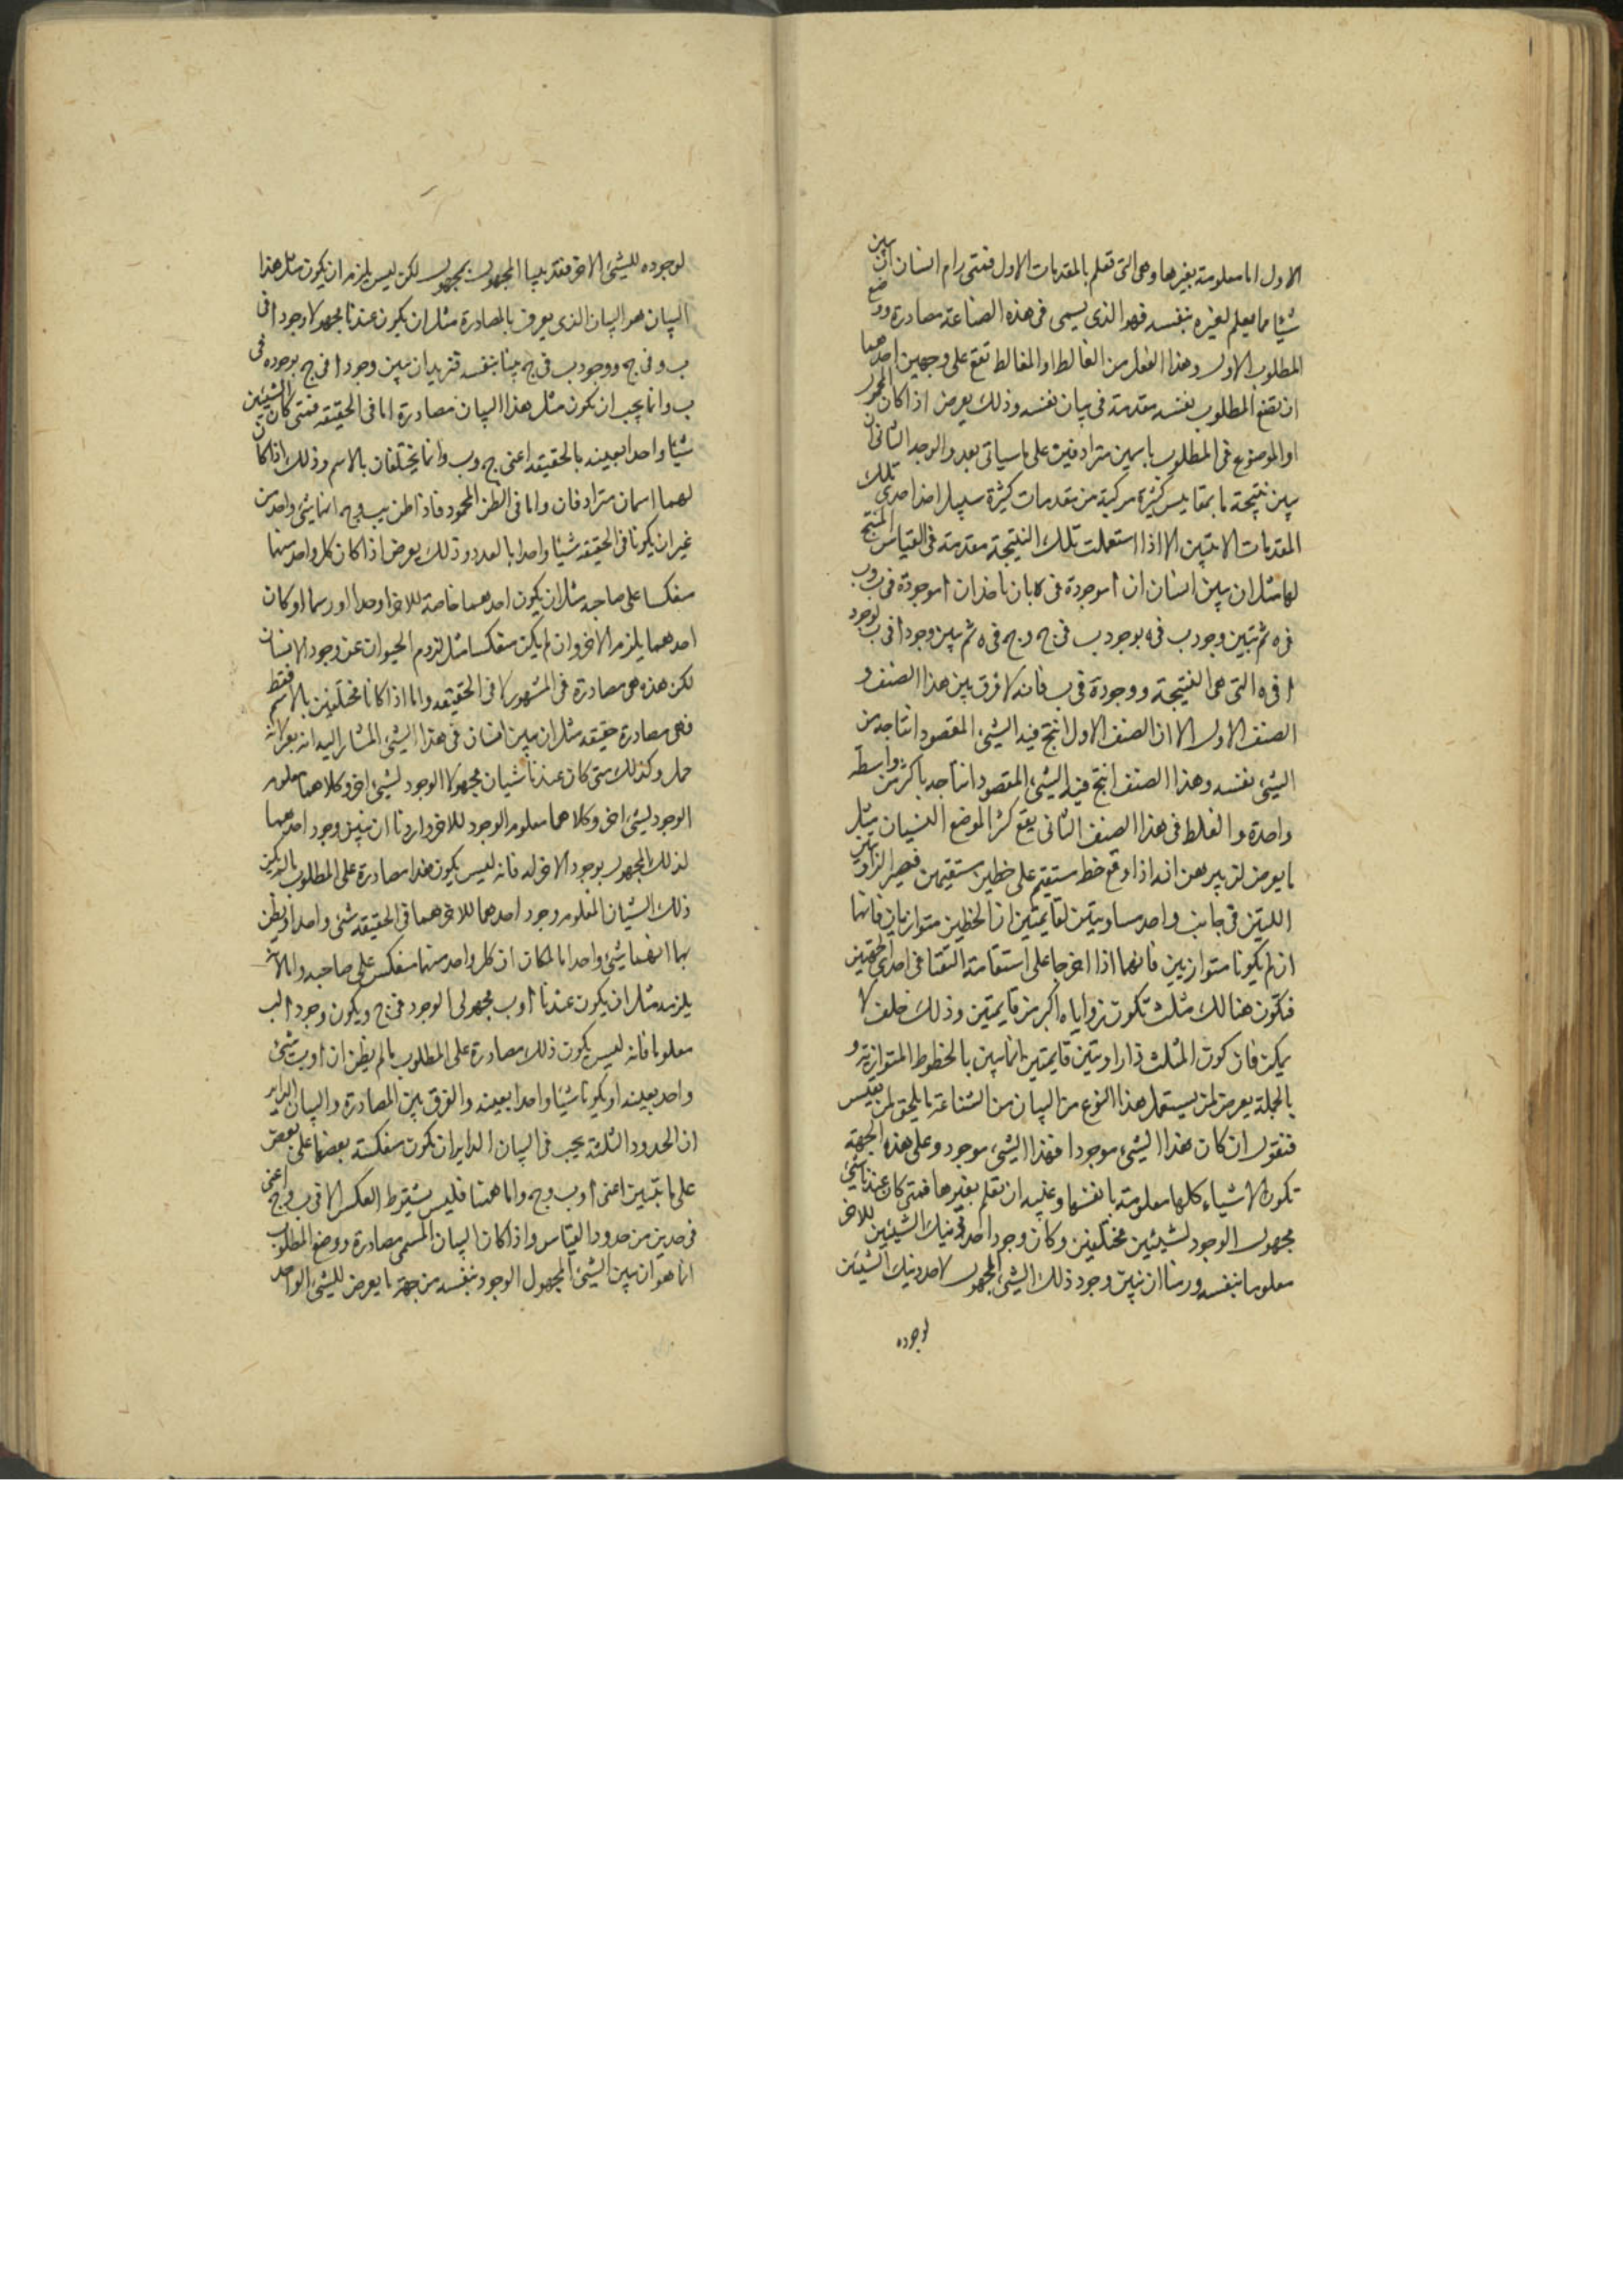 الاول اما معلومة بغيرها وهى التى تعلم بالمقدمات الاول فمتى رام انسان ان يبين
شيئا مما يعلم لغيره بنفسه فهو الذى يسمى فى هذه الصناعة مصادرة ووضع
المطلوب الاول وهذا الفعل من الغالط او المغالط تقع على وجهين احدهما
ان تضع المطلوب نفسه مقدمة فى بيان نفسه وذلك يعرض اذا كان المحمول
او الموضوع فى المطلوب باسمين مترادفين على ما سياتى بعد والوجه الثانى ان
يبين نتيجة ما بمقاييس كثيرة مركبة من مقدمات كثيرة سبيل احدى تلك
المقدمات الا يتبين الا اذا استعملت تلك النتيجة مقدمة فى القياس المنتج
لها مثل ان يبين انسان ان ا موجودة فى ه بان ناخذ ان ا موجودة فى ب وب
فى ه ثم يتبين وجود ب فى ه بوجود ب فى ج وج فى ه ثم يبين وجود ا فى ب بوجود
ا فى ه التى هى النتيجة ووجودة فى ب فانه لا فرق بين هذا الصنف و
الصنف الاول الا ان الصنف الاول انتج فيه الشيء المقصود انتاجه من
الشيء نفسه وهذا الصنف انتج فيه الشيء المقصود انتاجه باكثر من واسطة
واحدة والغلط فى هذا الصنف الثانى يقع كثر الموضع النسيان مثل
ما يعرض لمن يبرهن انه اذا وقع خط مستقيم على خطين مستقيمين فصير الزاويتين
اللتين فى جانب واحد مساويتين لقايمتين ان الخطين متوازيان فانهما
ان لم يكونا متوازيين فانهما اذا اخرجا على استقامة التقتا فى احدى الجهتين
فتكون هنالك مثلث تكون زواياه اكبر من قايمتين وذلك خلف لا
يمكن فان كون المثلث ذا زاويتين قايمتين انما يبين بالخطوط المتوازية و
بالجملة يعرض لمن يستعمل هذا النوع من البيان من الشناعة ما يلحق لمن يقيس
فنقول ان كان هذا الشيء موجودا فهذا الشيء موجود وعلى هذه الجهة
تكون الاشياء كلها معلومة بانفسها وغنية ان تعلم بغيرها فمتى كان عندنا شيء
مجهول الوجود لشيئين مختلفين وكان وجود احد ذينك الشيئين للاخر
معلوما بنفسه ورمنا ان نبين وجود ذلك الشيء المجهول لاحد ذينك الشيئين
لوجوده
لوجوده للشيء الاخر فقد بينا المجهول بمجهول لكن ليس يلزم ان يكون مثل هذا
البيان هو البيان الذى يعرف بالمصادرة مثل ان يكون عندنا مجهولا وجود ا فى
ب وفى ج ووجود ب فى ج بينا بنفسه فنريد ان نبين وجود ا فى ج بوجوده فى
ب وانما يجب ان يكون مثل هذا البيان مصادرة اما فى الحقيقة فمتى كان الشيئين
شيئا واحدا بعينه بالحقيقة اعنى ج وب وانما يختلفان بالاسم وذلك اذا كان
لهما اسمان مترادفان واما فى الظن المحمود فاذا ظن بب وج انهما شيء واحد من
غير ان يكونا فى الحقيقة شيئا واحدا بالعدد وذلك يعرض اذا كان كل واحد منهما
منعكسا على صاحبه مثل ان يكون احدهما خاصة للاخر او حدا او رسما او كان
احدهما يلزم الاخر وان لم يكن منعكسا مثل لزوم الحيوان عن وجود الانسان
لكن هذه هى مصادرة فى المشهور لا فى الحقيقة واما اذا كانا مختلفين بالاسم فقط
فهى مصادرة حقيقة مثل ان يبين انسان فى هذا الشيء المشار اليه انه بعير لانه
جمل وكذلك متى كان عندنا شيئان مجهولا الوجود لشيء اخر وكلاهما معلوم
الوجود لشيء اخر وكلاهما معلوم الوجود للاخر واردنا ان نبين وجود احدهما
لذلك المجهول بوجود الاخر له فانه ليس يكون هذا مصادرة على المطلوب ما لم يكن
ذلك الشيئان المعلوم وجود احدهما للاخر هما فى الحقيقة شيء واحد او يظن
بهما انهما شيء واحد اما لمكان ان كل واحد منهما منعكس على صاحبه واما لانه
يلزمه مثل ان يكون عندنا ا وب مجهولى الوجود فى ج ويكون وجود ا لب
معلوما فانه ليس يكون ذلك مصادرة على المطلوب ما لم يظن ان ا وب شيء
واحد بعينه او يكونا شيئا واحدا بعينه والفرق بين المصادرة والبيان الداير
ان الحدود الثلثة يجب فى البيان الداير ان تكون منعكسة بعضها على بعض
على ما تبين اعنى ا وب وج واما ههنا فليس يشترط العكس الا فى ب وج اعنى
فى حدين من حدود القياس واذا كان البيان المسمى مصادرة ووضع المطلوب
انما هو ان يبين الشيء المجهول الوجود بنفسه من جهة ما يعرض للشيء الواحد